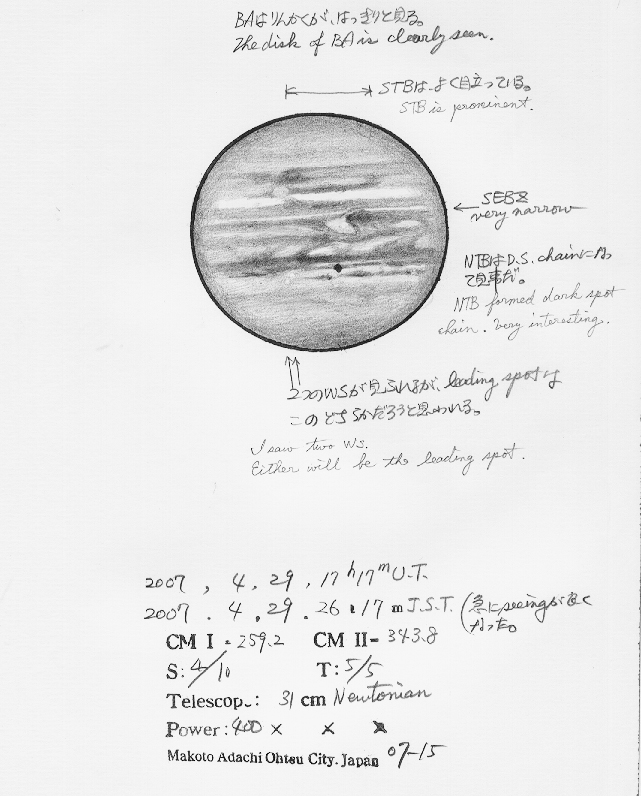 BAはりんかくが、はっきりと見る。
The disk of BA is clearly seen.
STBは、よく目立っている。
STB is prominent.
SEBZ
very narrow
NTBはD.S. chainになって見事だ。
NTB formed dark spot
chain. Very interesting.
2つのWSが見られるが、leading spotは
このどちらかだろうと思われる。
I saw two WS.
Either will be the leading spot.
2007, 4, 29, 17h17m U.T.
2007. 4. 29. 26 17 m J.S.T. (急にseeingが良く
なった。
CM I - 259.2 CM II - 343.8
S: 4/10 T: 5/5
Telescop.: 31 cm Newtonian
Power: 400 × × ×
Makoto Adachi Ohtsu City. Japan 07-15